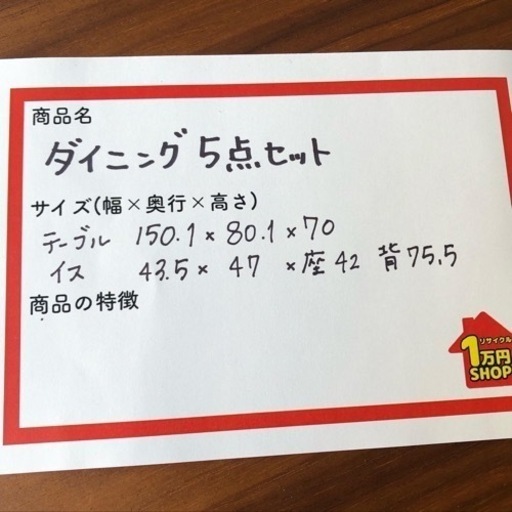 商品名
ダイニング5点セット
サイズ(幅×奥行×高さ)
テーブル 150.1×80.1×70
イス 43.5×47×座42 背75.5
商品の特徴
リサイクル
1万円
SHOP